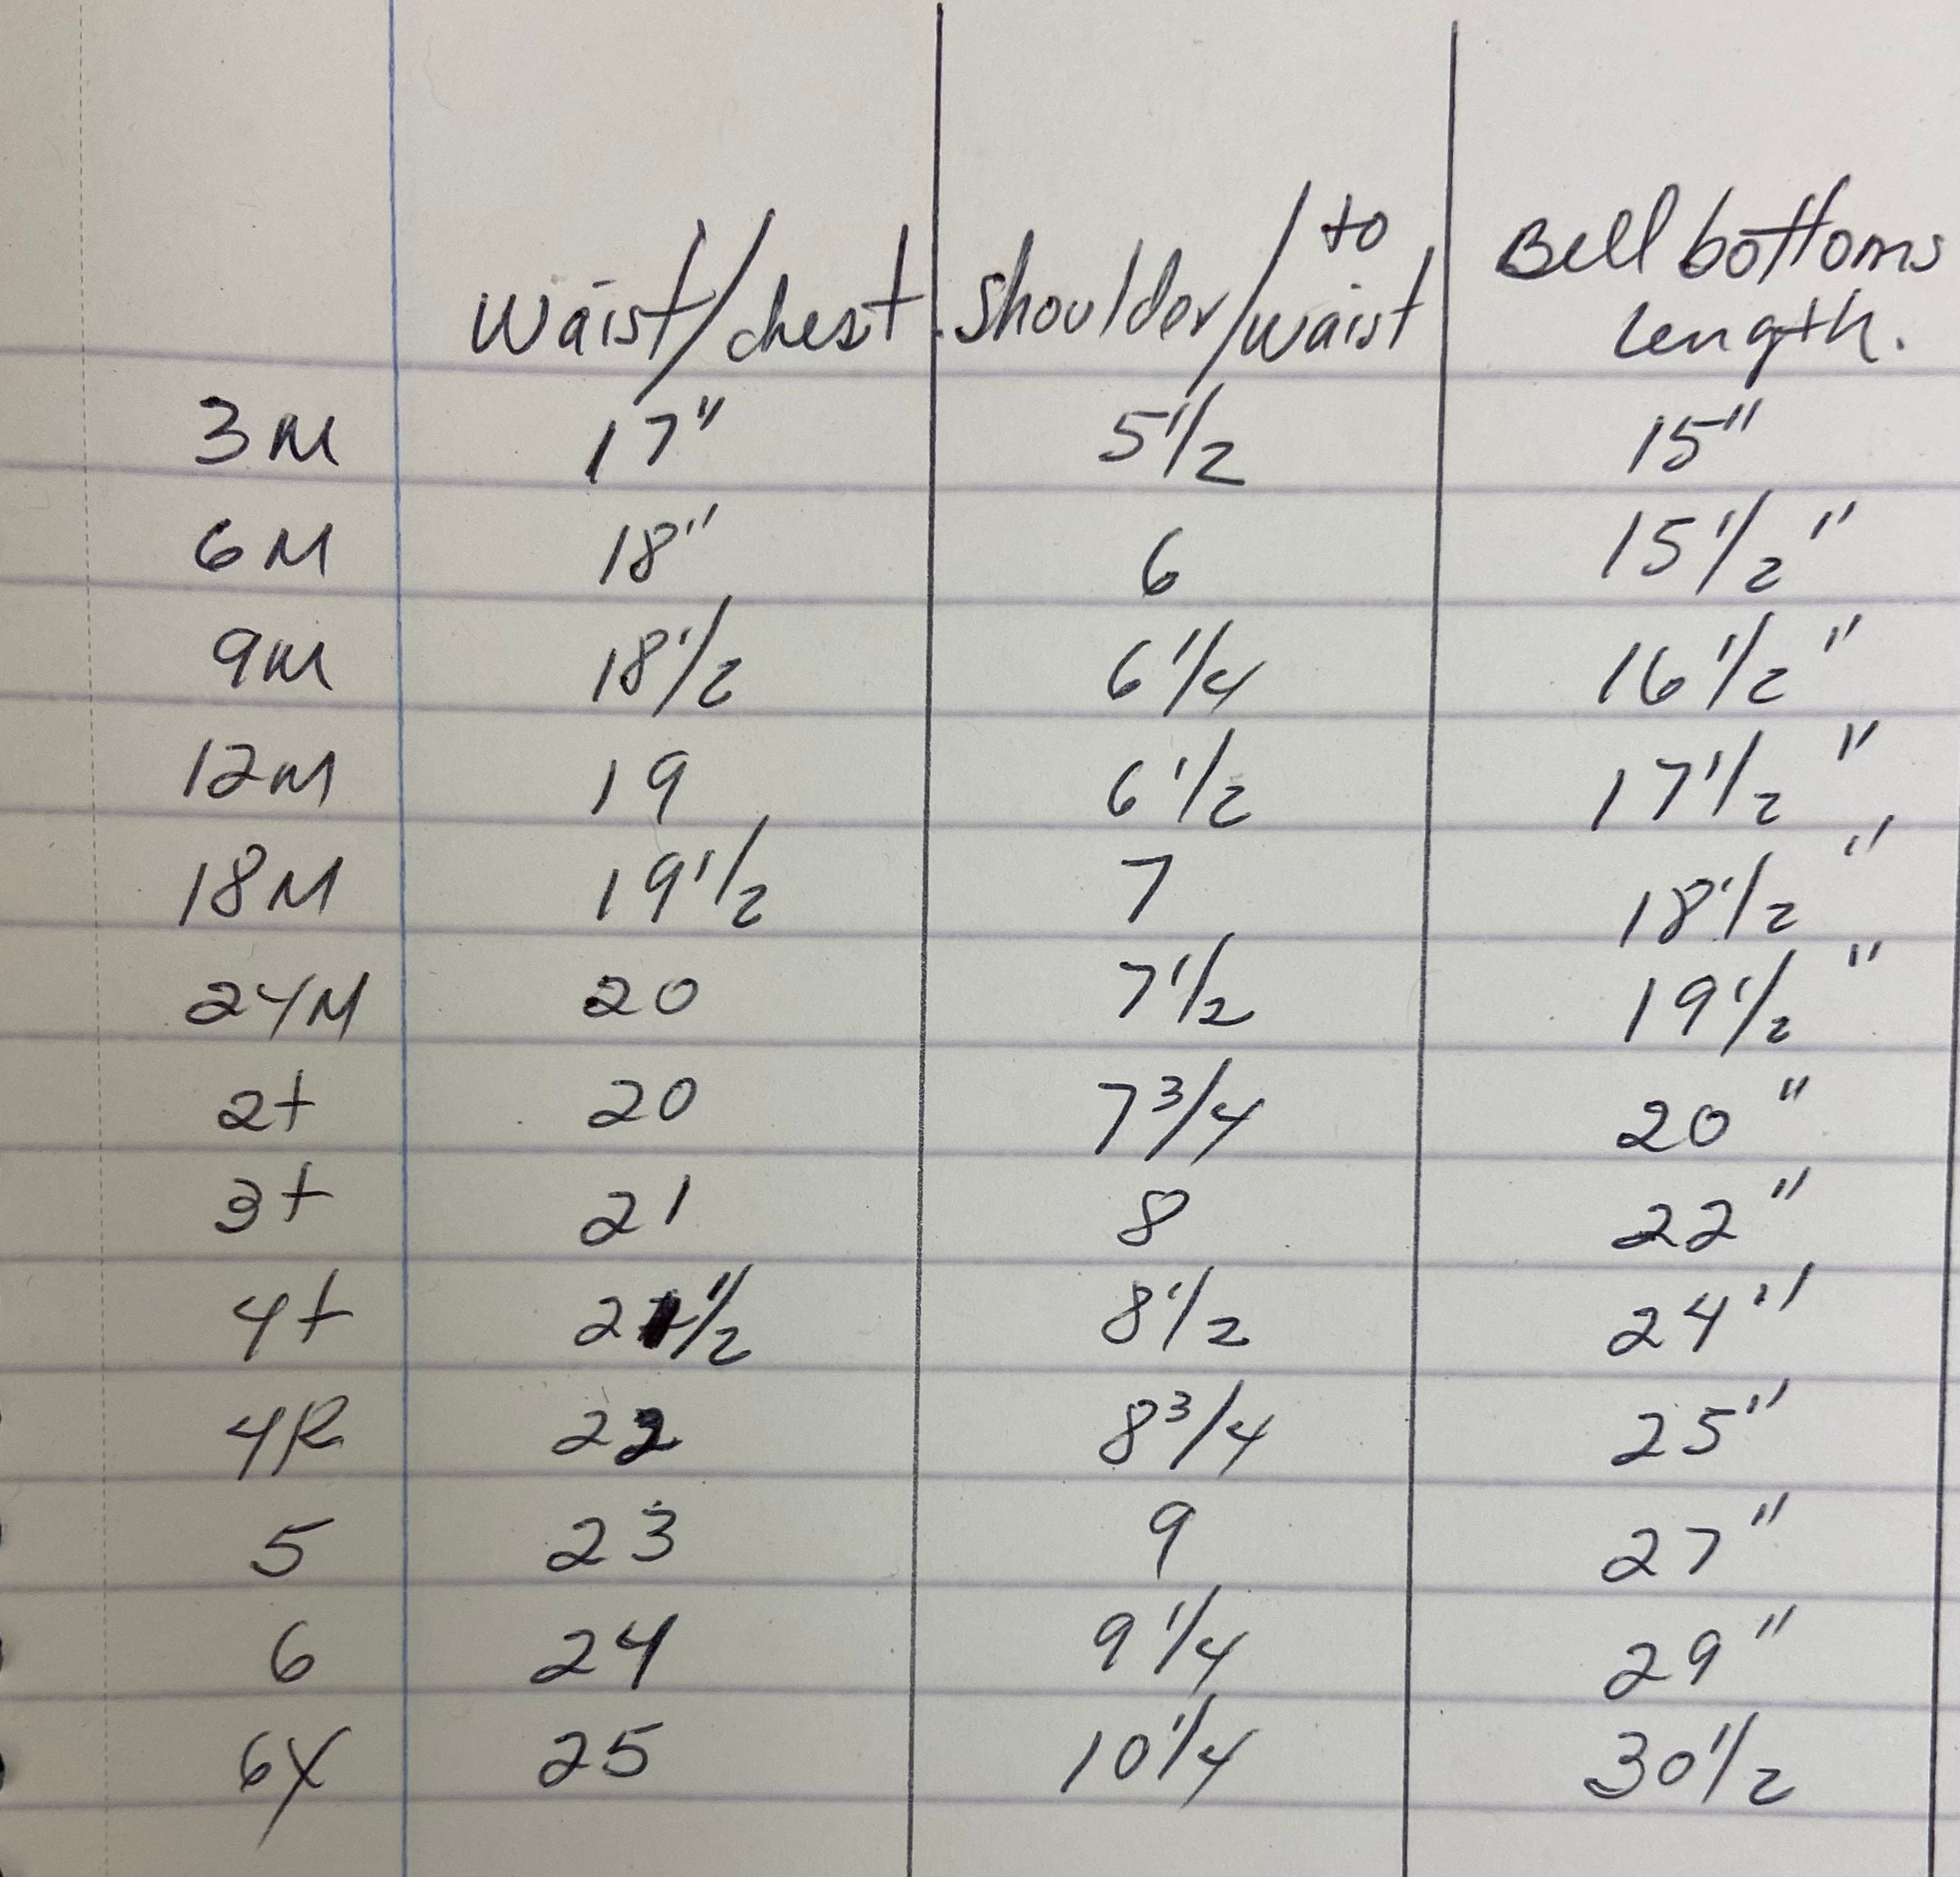 Waist/chest shoulder/to waist Bell bottoms length.
3M 17" 5 1/2 15"
6M 18" 6 15 1/2"
9M 18 1/2 6 1/4 16 1/2"
12M 19 6 1/2 17 1/2"
18M 19 1/2 7 18 1/2"
24M 20 7 1/2 19 1/2"
2t 20 7 3/4 20"
3t 21 8 22"
4t 21 1/2 8 1/2 24"
4R 22 8 3/4 25"
5 23 9 27"
6 24 9 1/4 29"
6X 25 10 1/4 30 1/2